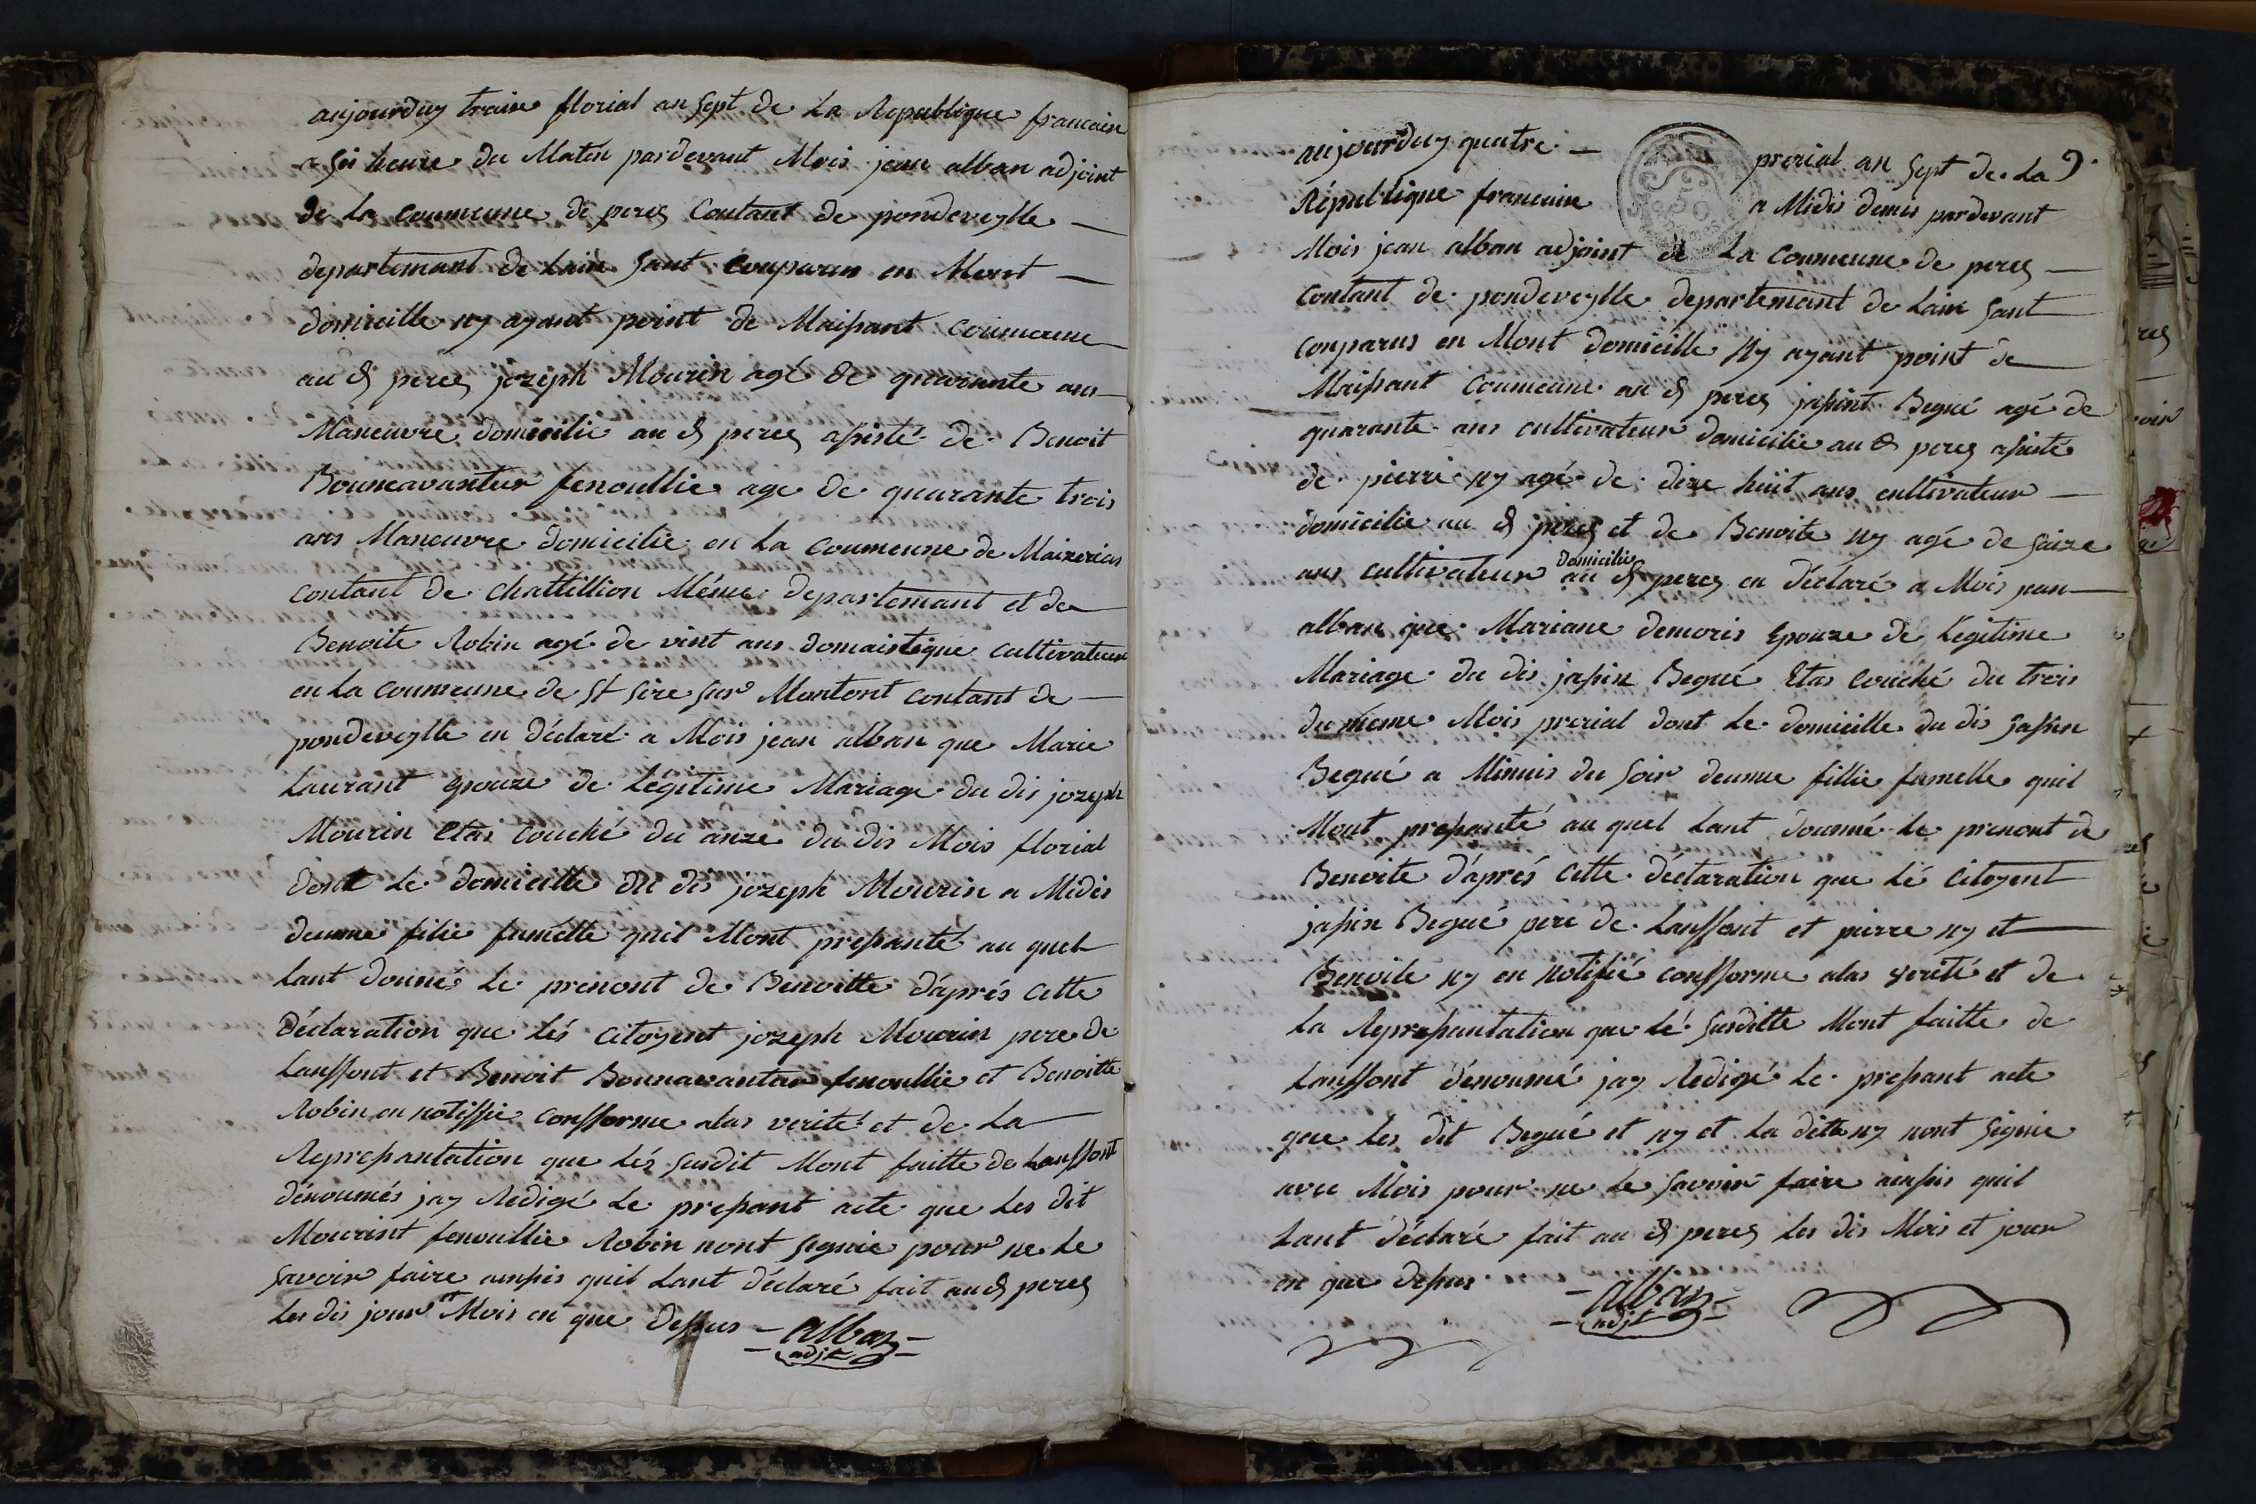 aujourduy traize florial an sept de La Republique francaise
a sis heure du Matin pardevant Mois jean alban adjoint
de La Coumeune de perex Contant de pondeveylle
departemant de Lain sant Couparus en Mont
domicille ny ayant point de Maisant Coumeune
au d perex jozeph Mourin agé de quarante ans
Maneuvre domicilié au d perex asisté de Benoit
Bouneavantur fenoullie age de quarante trois
ans Maneuvre domicilie en La Coumeune de Maizerias
contant de chattillion Méme departemant et de
Benoite Robin agé de vint ans domaistique cultivateur
en La Coumeune de st sire sur Mantont contant de
pondeveylle en déclaré a Mois jean alban que Marie
Laurant epouze de Légitime Mariage du dis jozeph
Mourin Etas Couché du onze du dis Mois florial
dont Le domicille du dis jozeph Mourin a Midis
deunne filie fumelle quil Mont presanté au quel
Lant donnés Le prenont de Benoitte d'aprés Cette
déclaration que Lés Citoyent jozeph Mourin pere de
Lanffont et Benoit Bounavantur fenoullie et Benoitte
Robin on notiffie conffprme alas verité et de La
Represantation que Lés susdit Mont faitte de Lanffont
dénoumés jay Redigé Le presant acte que Les dit
Mourint fenoullie Robin nont signie pour ne Le
savoir faire ainsis quil Lant déclaré fait au d perex
Les dis jour et Mois en que dessus - alban -
adjt
aujourduy quatre prerial an sept de La 9
République francaise a Midis demis pardevant
Mois jean alban adjoint de La Coumeune de perex
Contant de pondeveylle departemant de Lain sant
conparus en Mont domicille Ny ayant point de
Maisant Coumeune au d perex jasint Begué agé de
quarante ans cultivateur domicilie au d perex asisté
de pierre ny agé de dize huit ans cultivateur
domicilie au d perex et de Benoite ny agé de saize
ans cultivateur domicilie au d perex en déclaré a Mois jean
alban que Mariane demoris Epouze de Légitime
Mariage du dis jasin Begué Etas couché du trois
du meme Mois prerial dont Le domicille du dis jasin
Begué a Minuis du soir deunne fillie fumelle quil
Mont presanté au quel Lant dounné Le prenont de
Benoite d'aprés Cette déclaration que Lé Citoyent
jasin Begué pere de Lanffont et pierre ny et
Benoite ny en notifié conffprme alas verité et de
La Represantation que Lé susditte Mont faitte de
Lanffont dénoumé jay Redigé Le presant acte
que Les dit Begué et ny et La ditte ny nont signie
avec Mois pour ne Le savoir faire ainsis quil
Lant déclaré fait au d perex Les dis Mois et jour
en que desus - alban -
adjt